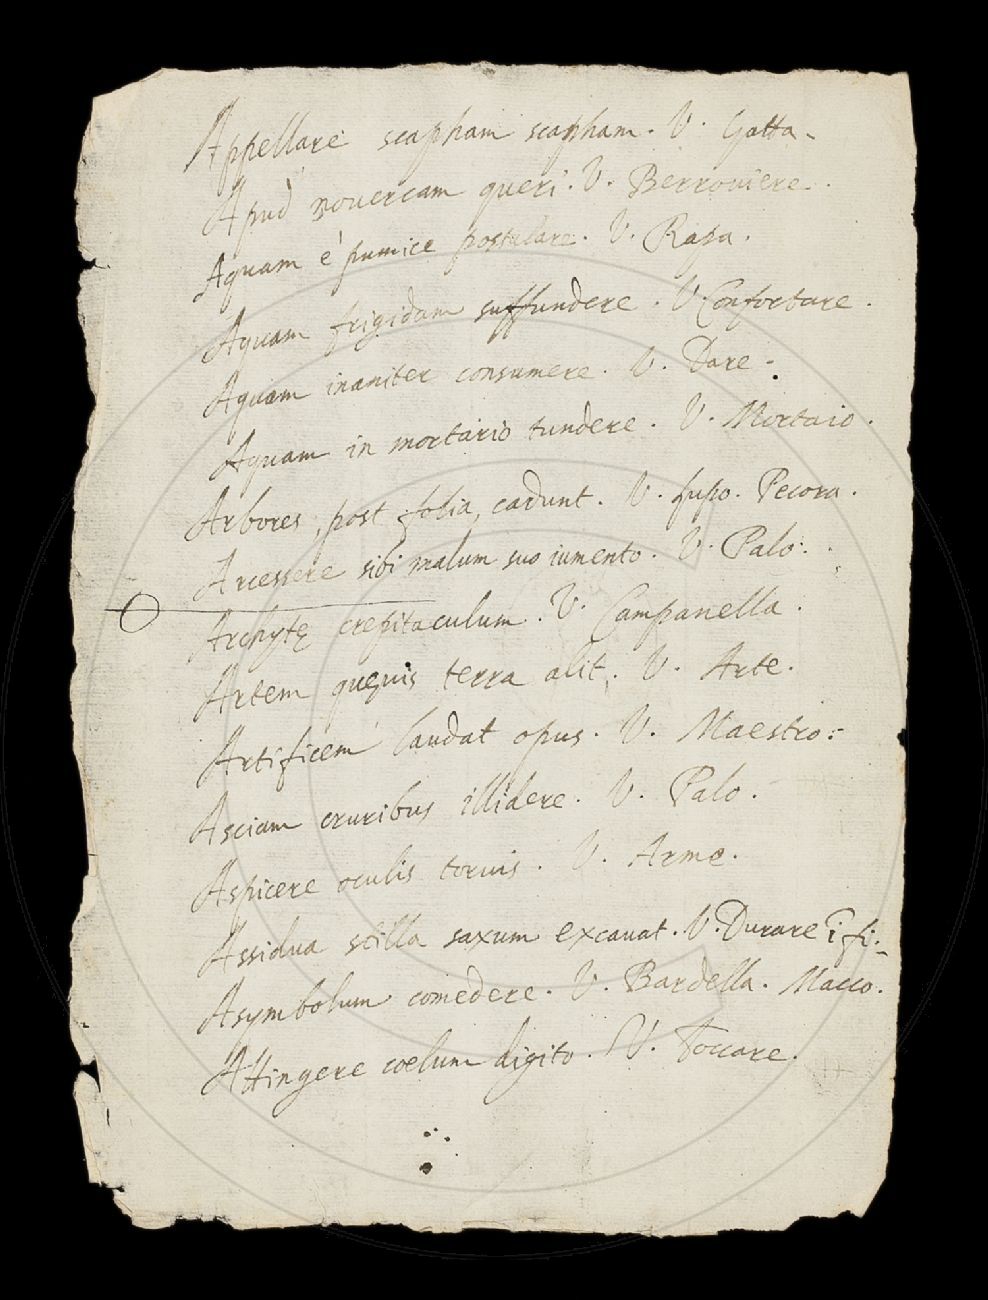 Appellare scapham scapham. V. Gatta.
Apud nouercam queri. V. Berrouiere.
Aquam è pumice postulare. V. Rapa.
Aquam frigidam suffundere. V. Confortare.
Aquam inaniter consumere. V. Dare.
Aquam in mortario tundere. V. Mortaio.
Arbores, post folia, cadunt. V. Lupo. Pecora.
Arcessere sibi malum suo iumento. V. Palo.
Archytę crepitaculum. V. Campanella.
Artem quęuis terra alit. V. Arte.
Artificem laudat opus. V. Maestro.
Asciam cruribus illidere. V. Palo.
Aspicere oculis toruis. V. Arme.
Assidua stilla saxum excauat. V. Durare
Asymbolum comedere. V. Bardella. Macco.
Attingere coelum digito. V. Toccare.